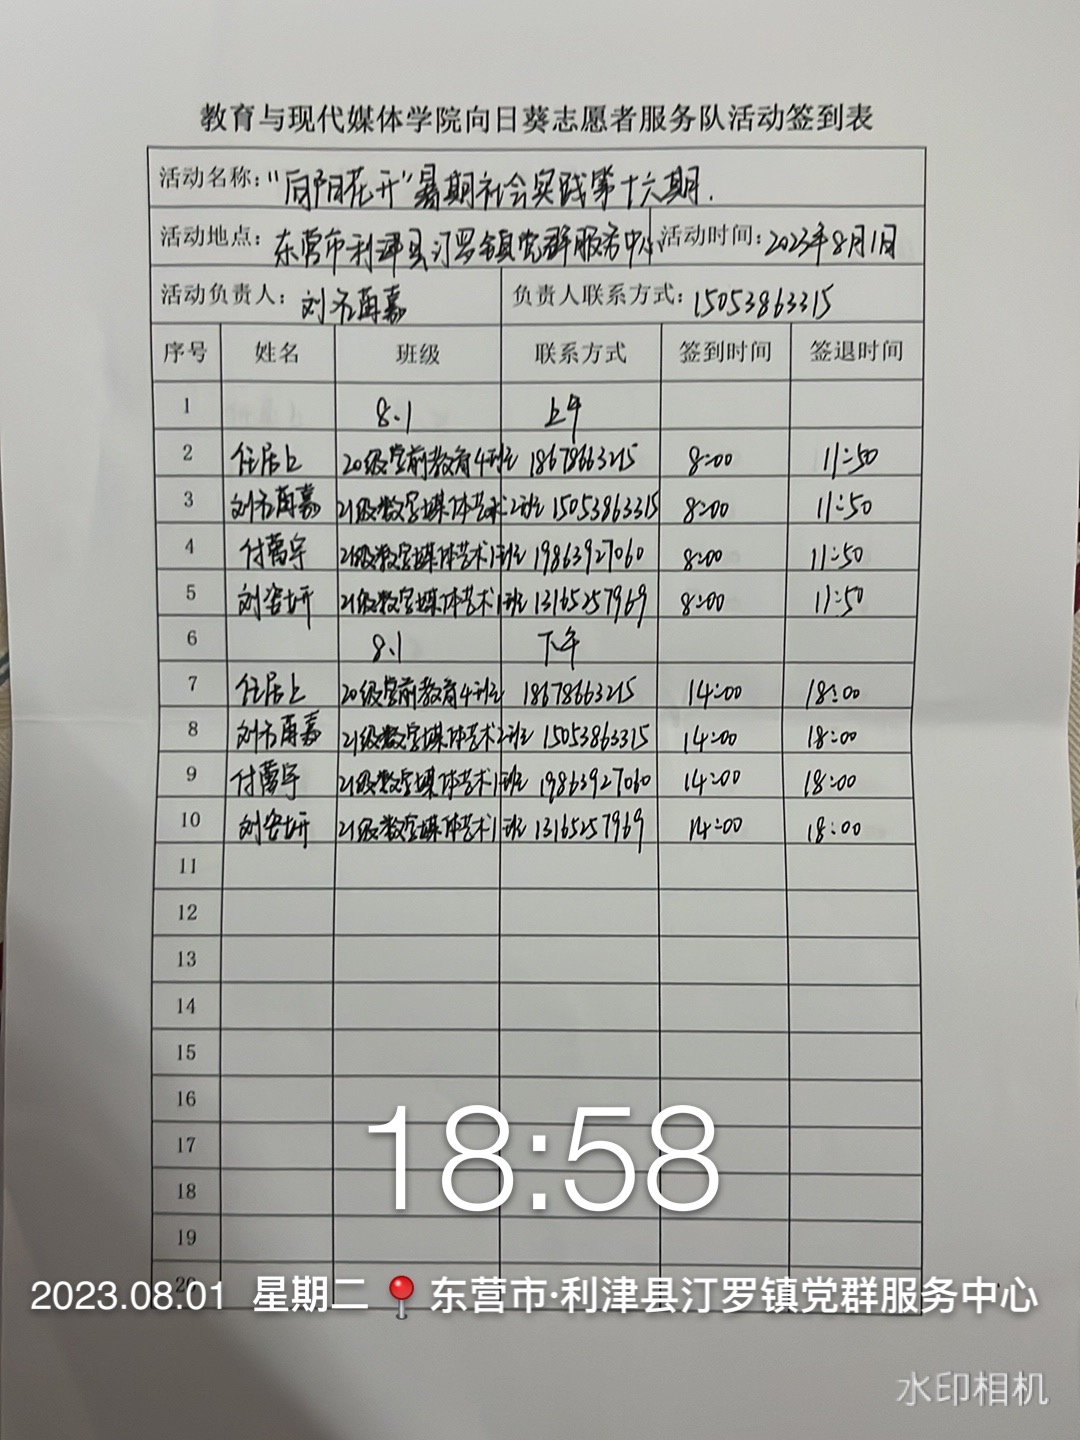 教育与现代媒体学院向日葵志愿者服务队活动签到表
活动名称："向阳花开"暑期社会实践第十六期.
活动地点：东营市利津县汀罗镇党群服务中心 活动时间：2023年8月1日
活动负责人：刘 嘉 负责人联系方式：15053863315
序号 姓名 班级 联系方式 签到时间 签退时间
1 8.1 上午
2 任居上 20级学前教育4班 18678663215 8:00 11:50
3 刘 嘉 21级数字媒体艺术2班 15053863315 8:00 11:50
4 付 宇 21级数字媒体艺术1班 19863927060 8:00 11:50
5 刘 妍 21级数字媒体艺术1班 13165257969 8:00 11:50
6 8.1 下午
7 任居上 20级学前教育4班 18678663215 14:00 18:00
8 刘 嘉 21级数字媒体艺术2班 15053863315 14:00 18:00
9 付 宇 21级数字媒体艺术1班 19863927060 14:00 18:00
10 刘 妍 21级数字媒体艺术1班 13165257969 14:00 18:00
11
12
13
14
15
16
17
18
19
20
18:58
2023.08.01 星期二 东营市·利津县汀罗镇党群服务中心
水印相机